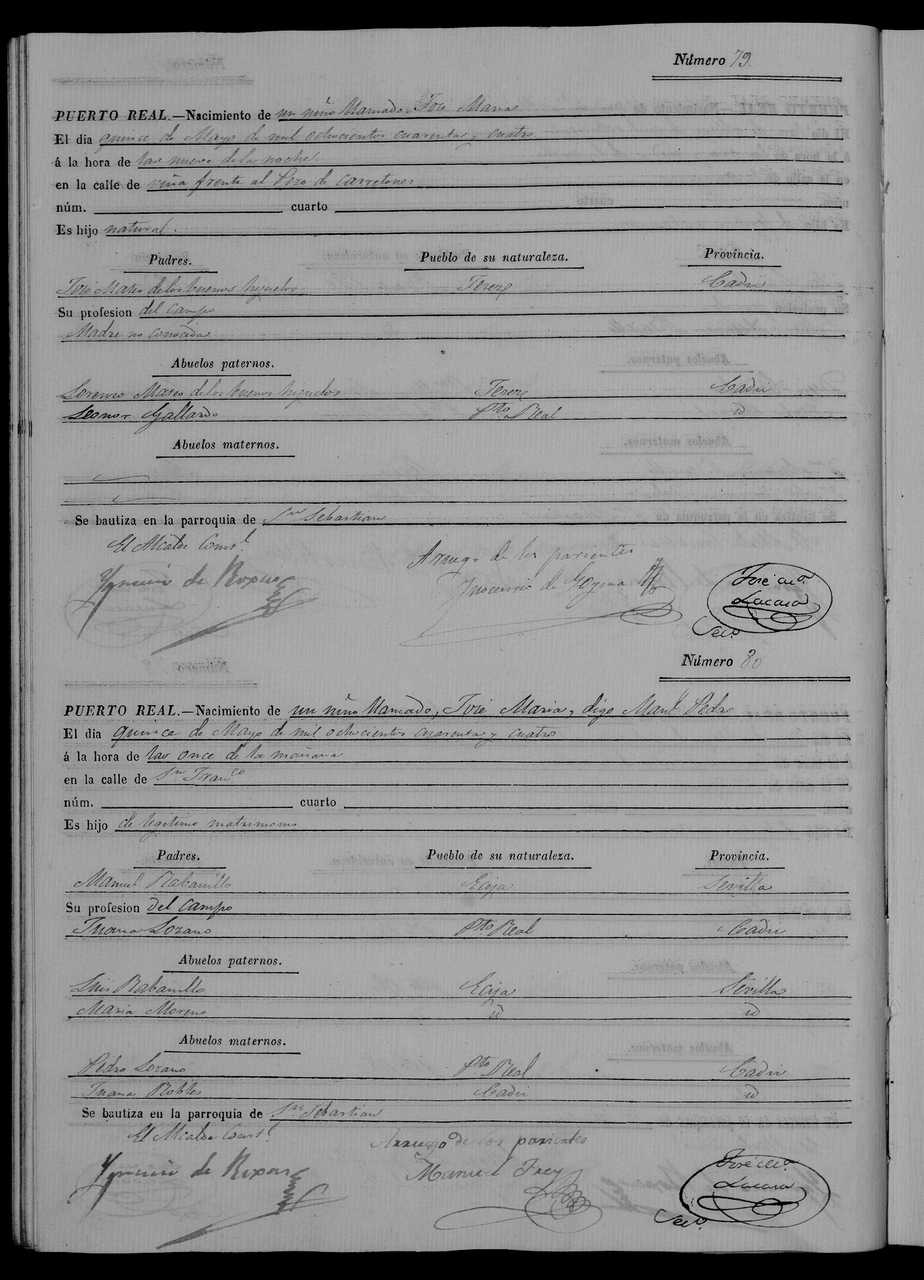 Número 79.
PUERTO REAL.—Nacimiento de un niño llamado José Maria
El dia quince de Mayo de mil ochocientos cuarenta y cuatro
á la hora de las nueve de la noche
en la calle de viña frente al Pozo de Carretones
núm. cuarto
Es hijo natural.
Padres. Pueblo de su naturaleza. Provincia.
José Mateo de los buenos Jerez Cadiz
Su profesion del campo
Madre no conocida
Abuelos paternos.
Lorenzo Mateo de los buenos Jerez Cadiz
Leonor Gallardo Pto Real id
Abuelos maternos.
Se bautiza en la parroquia de Sn Sebastian
El Alcalde Constl. Aruego de los parientes
José Ma
Lacasa
Seco
Número 80
PUERTO REAL.—Nacimiento de un niño llamado, José Maria, digo Manl Pedro
El dia quince de Mayo de mil ochocientos cuarenta y cuatro
á la hora de las once de la mañana
en la calle de Sn Franco
núm. cuarto
Es hijo de legitimo matrimonio
Padres. Pueblo de su naturaleza. Provincia.
Manuel Rabanillo Ecija Sevilla
Su profesion del campo
Juana Lozano Pto Real Cadiz
Abuelos paternos.
Luis Rabanillo Ecija Sevilla
Maria Moreno id id
Abuelos maternos.
Pedro Lozano Pto Real Cadiz
Juana Robles Cadiz id
Se bautiza en la parroquia de Sn Sebastian
El Alcalde Constl. Aruego de los parientes
Manuel Frey
José Ma
Lacasa
Seco